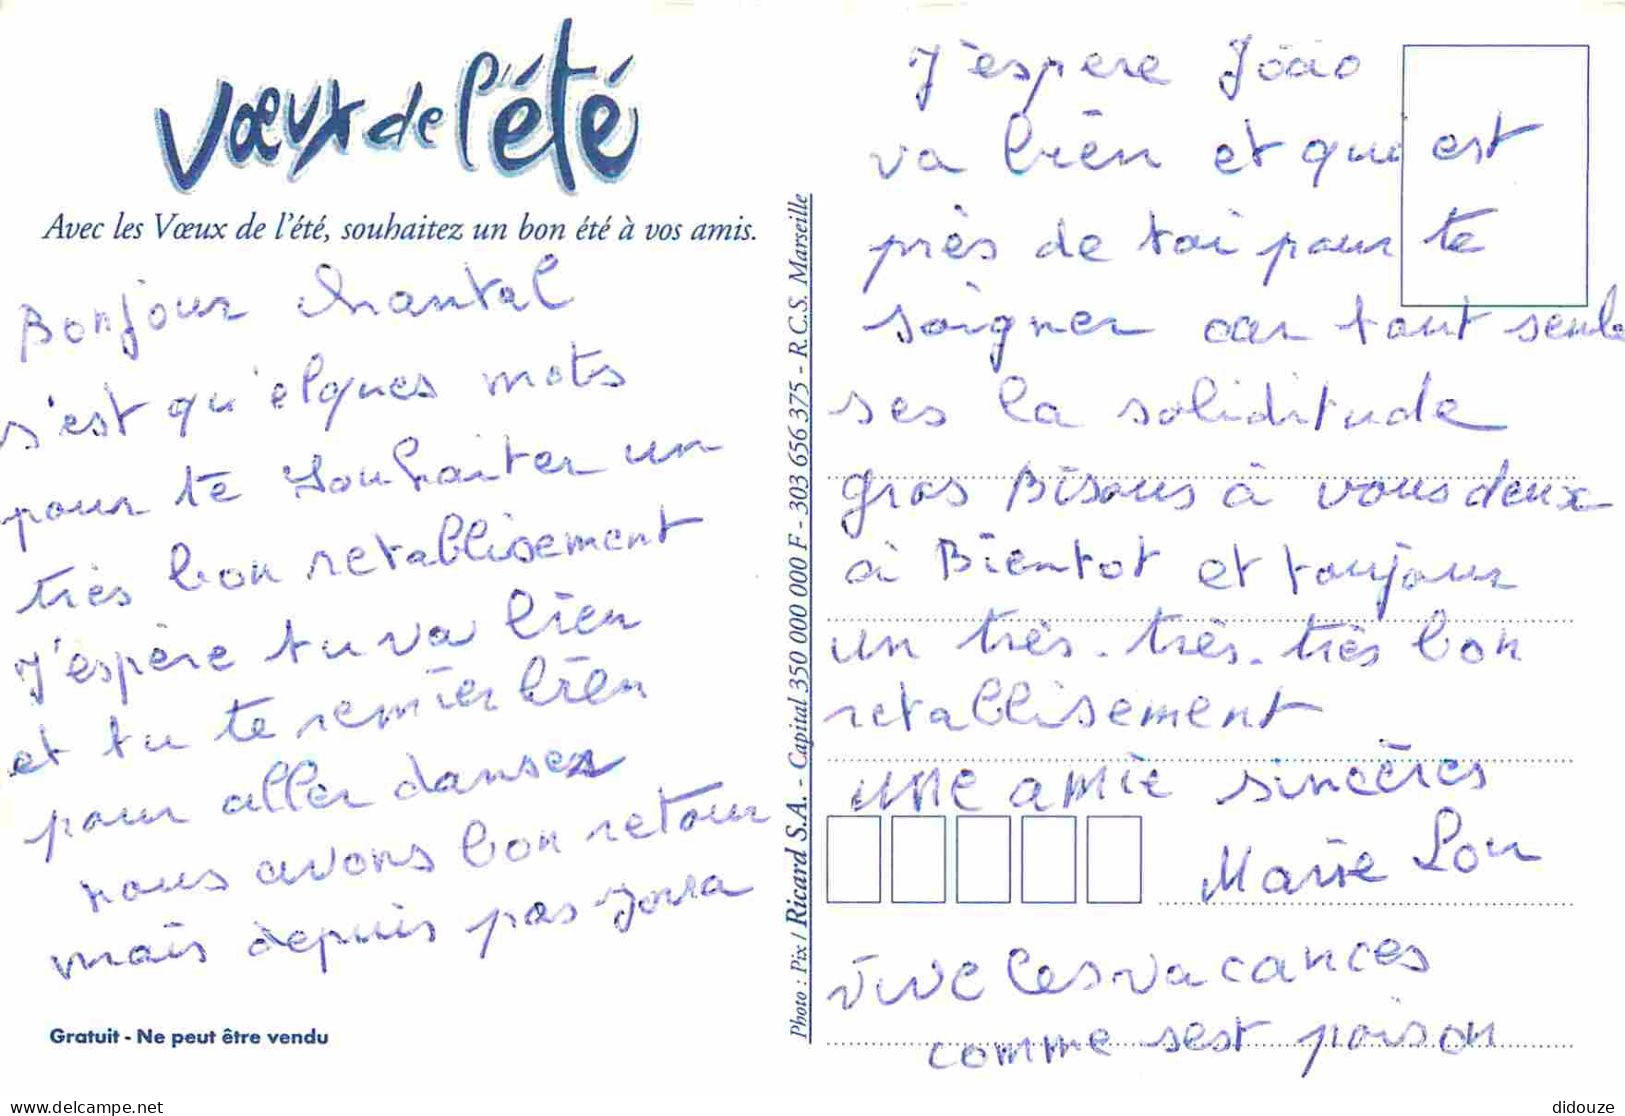 Vœux de l'été
Avec les Vœux de l'été, souhaitez un bon été à vos amis.
Bonjour Chantal
s'est qu'elques mots
pour te souhaiter un
très bon retablisement
J'espère tu va bien
et tu te remier bien
pour aller danser
nous avons bon retour
mais depuis pas
Gratuit - Ne peut être vendu
Photo : Pix / Ricard S.A. - Capital 350 000 000 F - 303 656 375 - R.C.S. Marseille
J'éspere Jöáo
va bien et qui est
près de toi pour te
soigner car tout seule
ses la soliditude
gros Bisous à vous deux
à Bientot et toujour
un très. très. très bon
retablisement
une amie sincères
Marie Lou
Vive les vacances
comme sest poison
delcampe.net
didouze